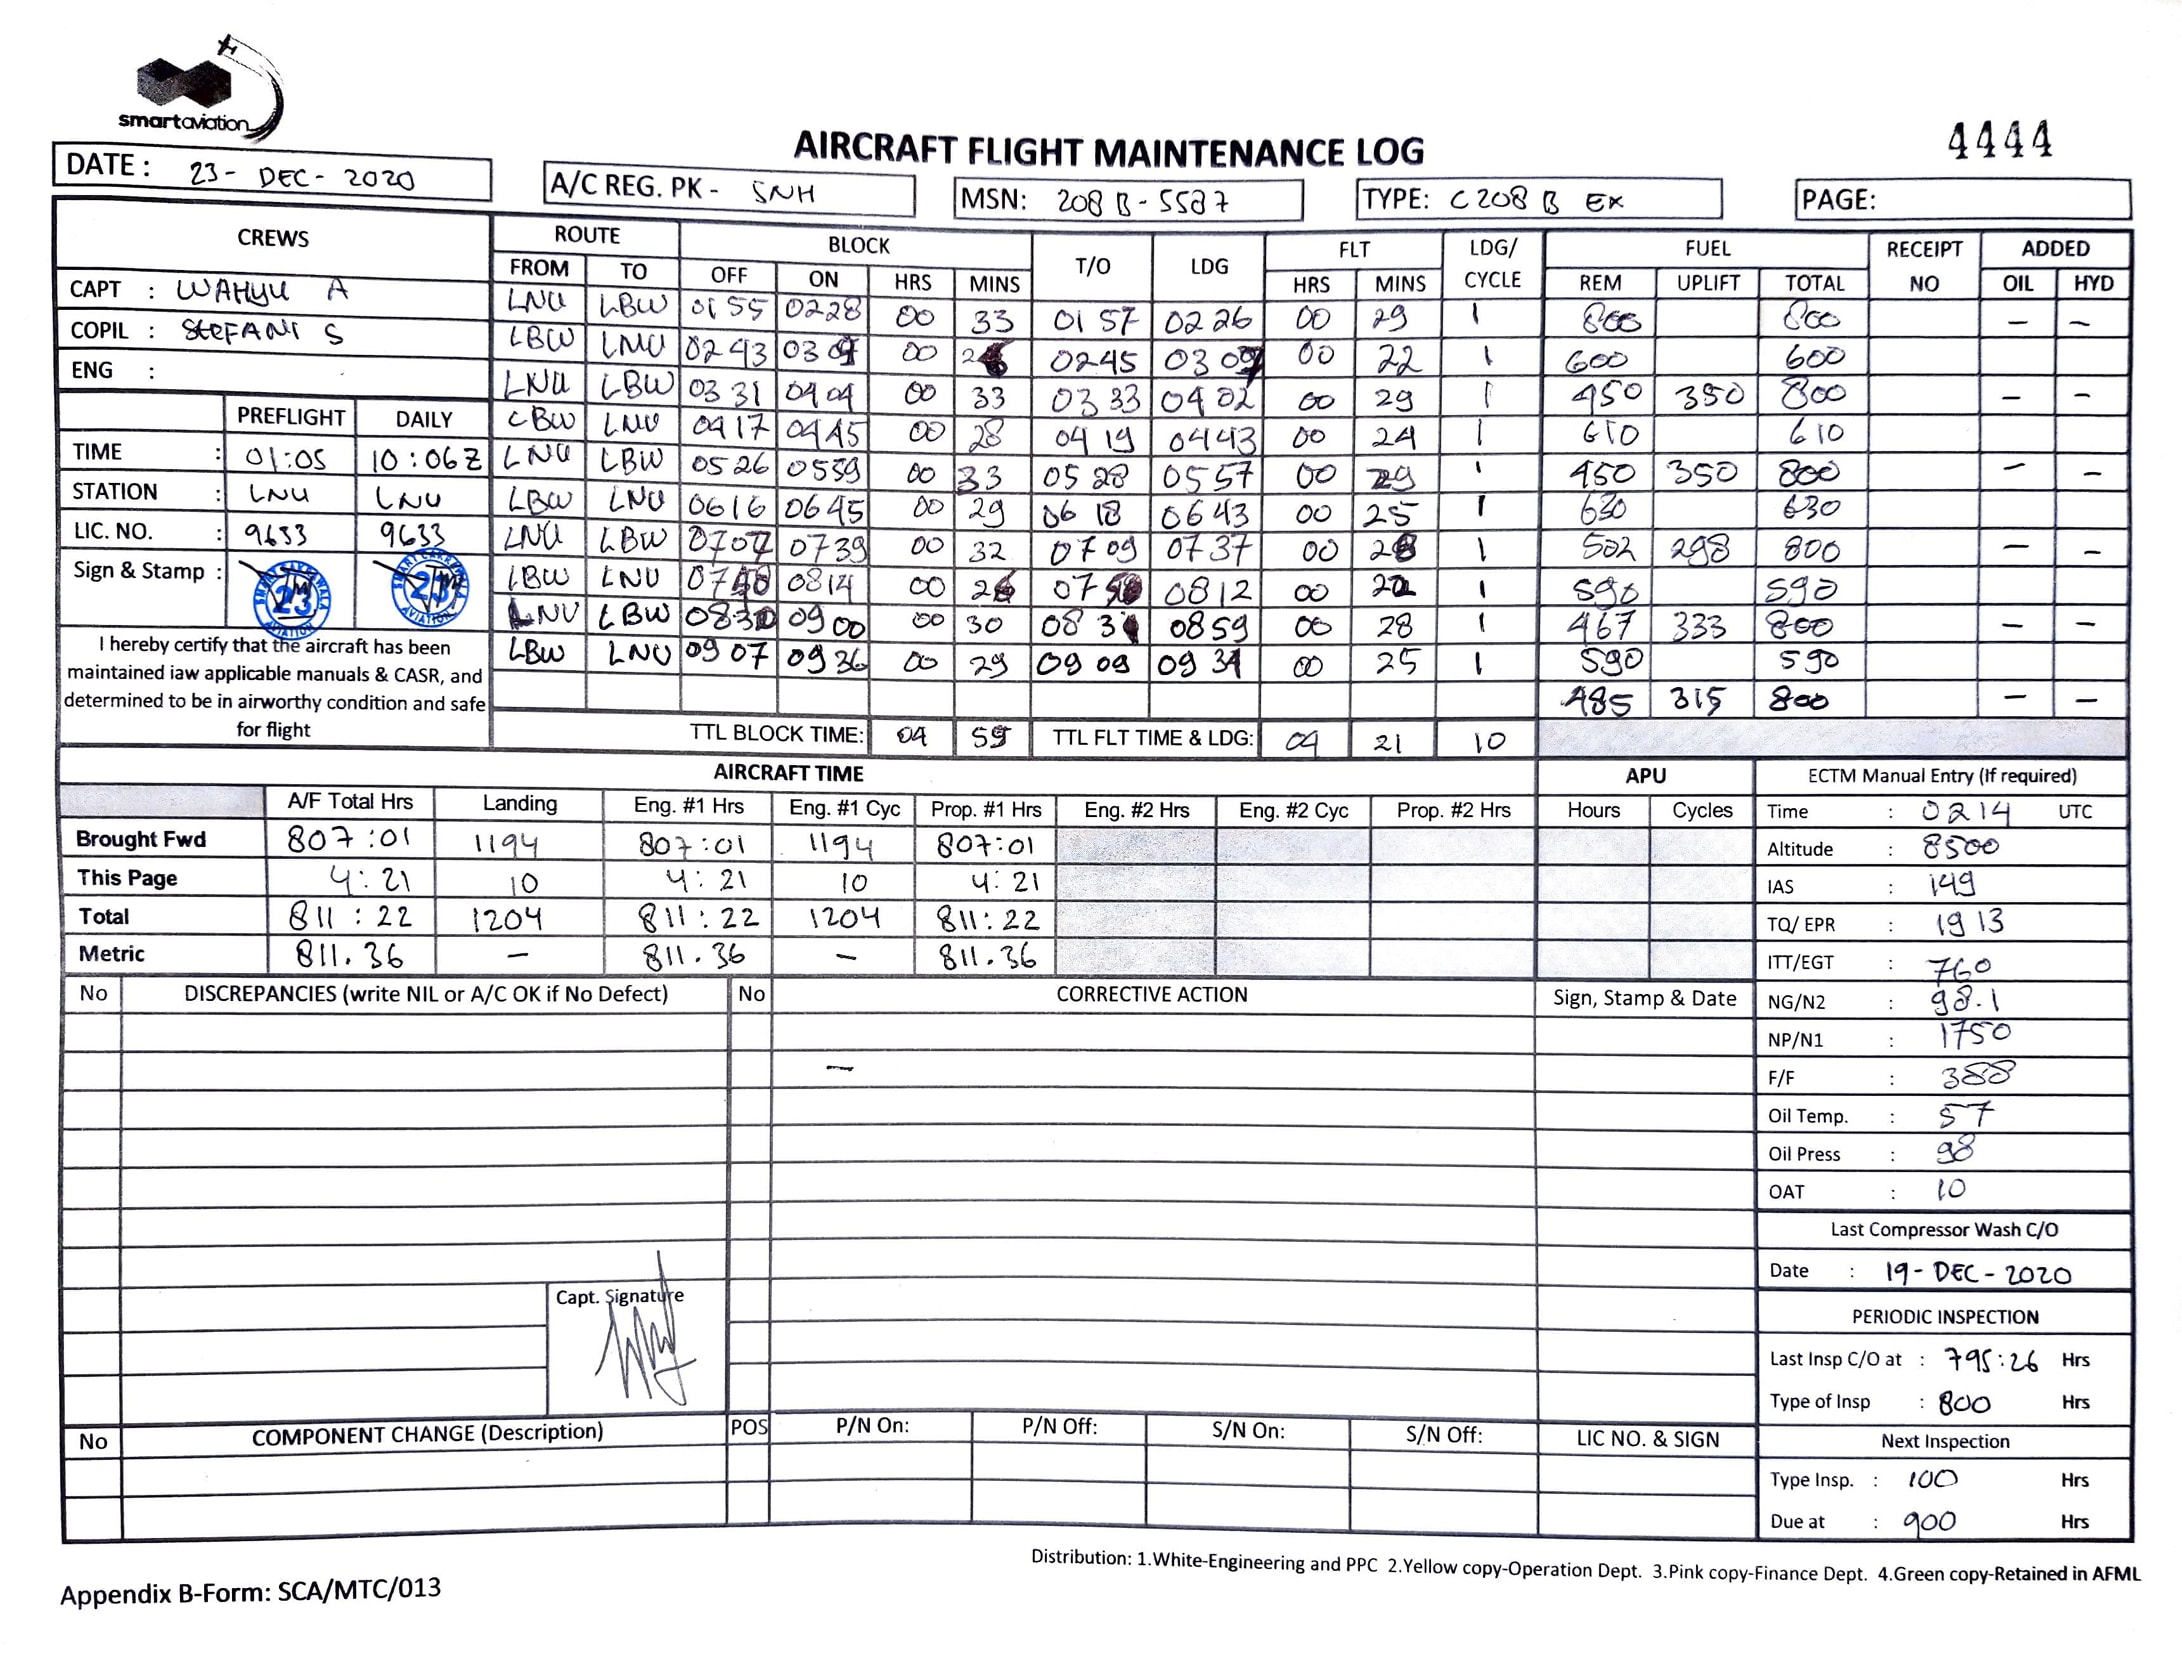 smartaviation
AIRCRAFT FLIGHT MAINTENANCE LOG
4444
DATE : 23 - DEC - 2020
A/C REG. PK - SNH
MSN: 208 B - 5587
TYPE: C 208 B EX
PAGE:
CREWS ROUTE BLOCK T/O LDG FLT LDG/ CYCLE FUEL RECEIPT NO ADDED
FROM TO OFF ON HRS MINS HRS MINS REM UPLIFT TOTAL OIL HYD
CAPT : WAHYU A
COPIL : STEFANI S
ENG :
PREFLIGHT DAILY
TIME : 01:05 10:06Z
STATION : LNU LNU
LIC. NO. : 9633 9633
Sign & Stamp :
SMART CAKRAWALA AVIATION 23
SMART CAKRAWALA AVIATION 23
I hereby certify that the aircraft has been
maintained iaw applicable manuals & CASR, and
determined to be in airworthy condition and safe
for flight
LNU LBW 0155 0228 00 33 0157 0226 00 29 1 800 800 — —
LBW LNU 0243 0309 00 26 0245 0307 00 22 1 600 600
LNU LBW 0331 0404 00 33 0333 0402 00 29 1 450 350 800 — —
LBW LNU 0417 0445 00 28 0419 0443 00 24 1 610 610
LNU LBW 0526 0559 00 33 0528 0557 00 29 1 450 350 800 — —
LBW LNU 0616 0645 00 29 0618 0643 00 25 1 630 630
LNU LBW 0707 0739 00 32 0709 0737 00 28 1 502 298 800 — —
LBW LNU 0814 00 26 0812 00 22 1 590 590
LNU LBW 0830 0900 00 30 0831 0859 00 28 1 467 333 800 — —
LBW LNU 0907 0936 00 29 0909 0934 00 25 1 590 590
485 315 800 — —
TTL BLOCK TIME: 04 59 TTL FLT TIME & LDG: 04 21 10
AIRCRAFT TIME APU
A/F Total Hrs Landing Eng. #1 Hrs Eng. #1 Cyc Prop. #1 Hrs Eng. #2 Hrs Eng. #2 Cyc Prop. #2 Hrs Hours Cycles
Brought Fwd 807:01 1194 807:01 1194 807:01
This Page 4:21 10 4:21 10 4:21
Total 811:22 1204 811:22 1204 811:22
Metric 811.36 — 811.36 — 811.36
ECTM Manual Entry (If required)
Time : 0214 UTC
Altitude : 8500
IAS : 149
TQ/ EPR : 1913
ITT/EGT : 760
NG/N2 : 98.1
NP/N1 : 1750
F/F : 388
Oil Temp. : 57
Oil Press : 98
OAT : 10
Last Compressor Wash C/O
Date : 19 - DEC - 2020
PERIODIC INSPECTION
Last Insp C/O at : 795:26 Hrs
Type of Insp : 800 Hrs
Next Inspection
Type Insp. : 100 Hrs
Due at : 900 Hrs
No DISCREPANCIES (write NIL or A/C OK if No Defect) No CORRECTIVE ACTION Sign, Stamp & Date
—
Capt. Signature
No COMPONENT CHANGE (Description) POS P/N On: P/N Off: S/N On: S/N Off: LIC NO. & SIGN
Distribution: 1.White-Engineering and PPC 2.Yellow copy-Operation Dept. 3.Pink copy-Finance Dept. 4.Green copy-Retained in AFML
Appendix B-Form: SCA/MTC/013